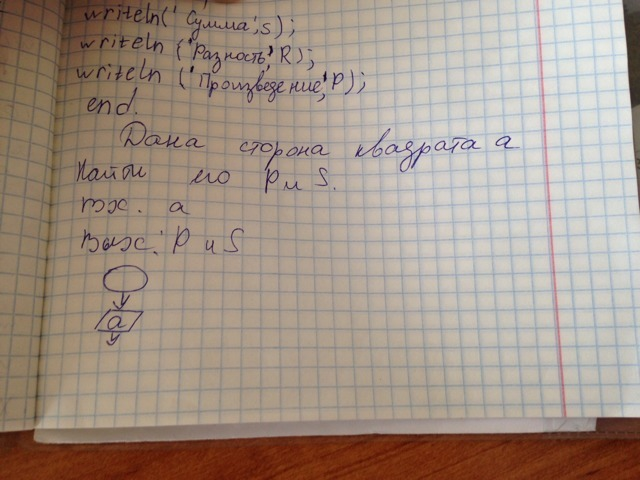 writeln(' Сумма',s);
writeln ('Разность',R);
writeln ('Произведение',P);
end.
Дана сторона квадрата a
Найти его P и S.
вх. a
Вых: P и S
a